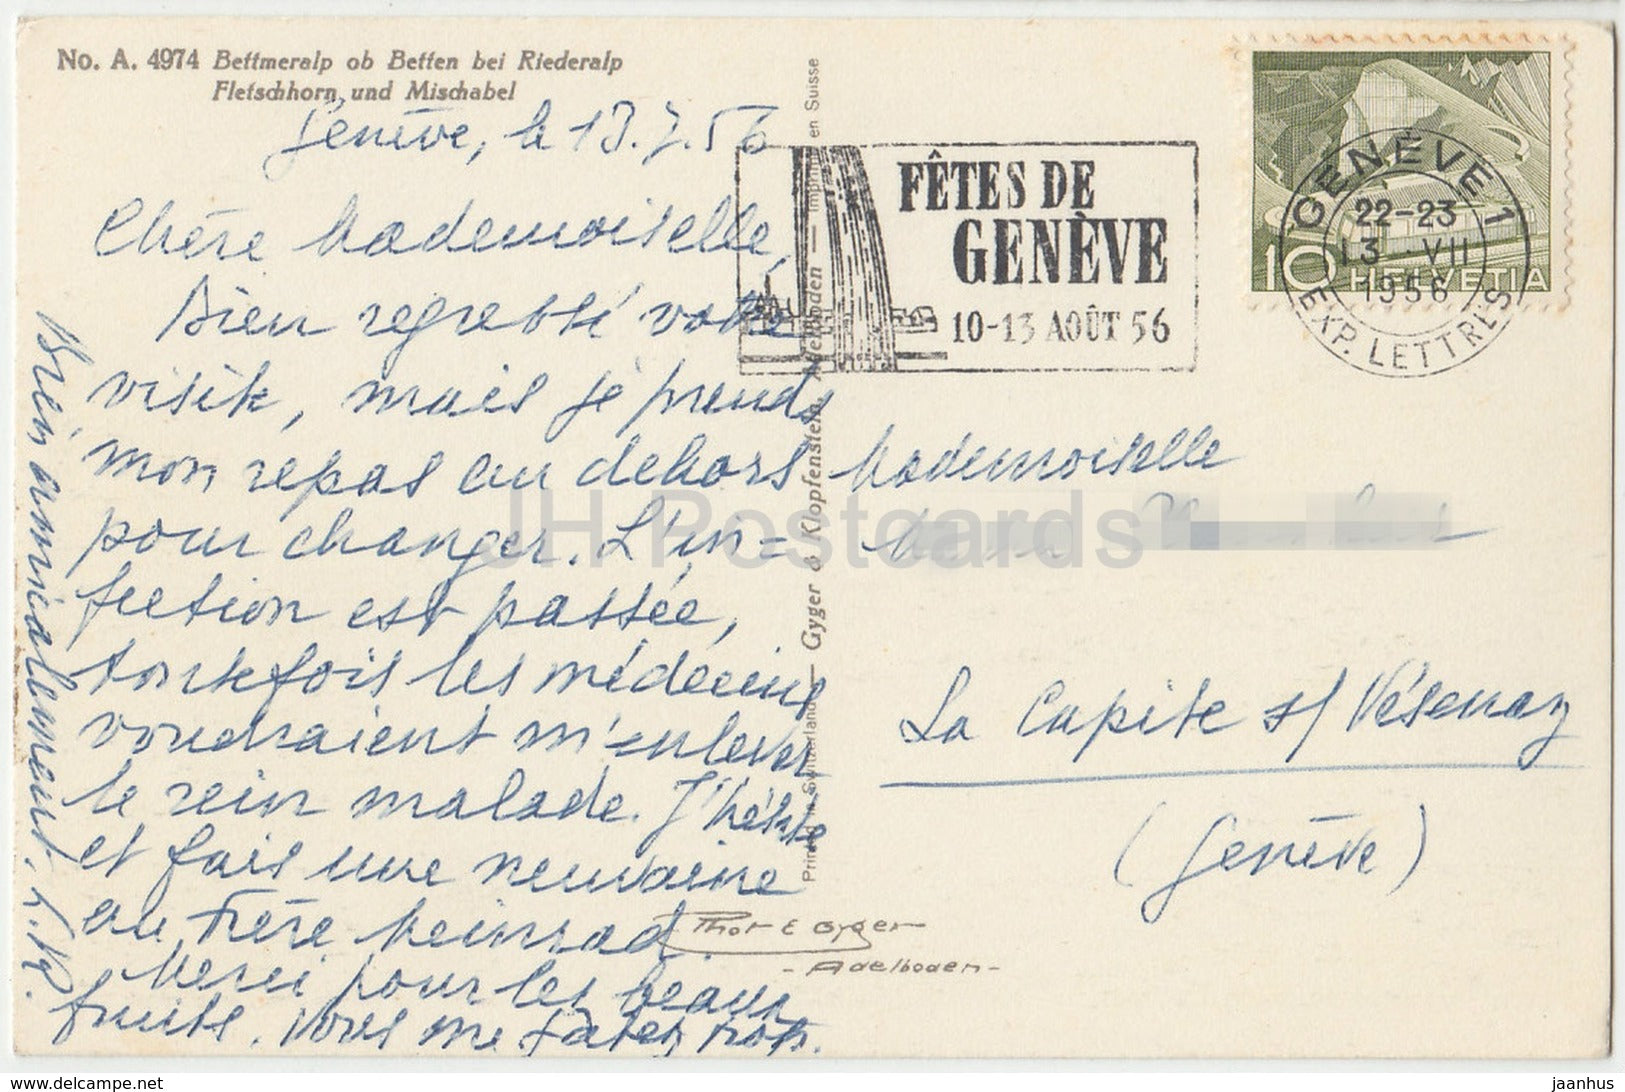 No. A. 4974 Bettmeralp ob Betten bei Riederalp
Fletschhorn und Mischabel
Genève, le 13.7.56
Chère Mademoiselle,
Bien regretté votre
visite, mais je prends
mon repas au dehors
pour changer. L'in=
fection est passée,
toutefois les médecins
voudraient m'enlever
le rein malade. J'hésite
et fais une neuvaine
au Frère Meinrad.
Merci pour les beaux
fruits. Vous me gâtez trop.
Bien amicalement,
Printed in Switzerland — Gyger & Klopfenstein, Adelboden — Imprimé en Suisse
FÊTES DE
GENÈVE
10-13 AOÛT 56
GENÈVE 1
22-23
13 VII
1956
EXP. LETTRES
10 HELVETIA
Mademoiselle
La Capite s/ Vésenaz
(Genève)
Phot E Gyger
- Adelboden -
JH Postcards
http://www.delcampe.net
jaanhus